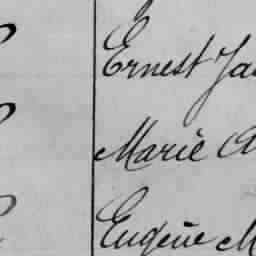 Ernest
Marie
Eugène